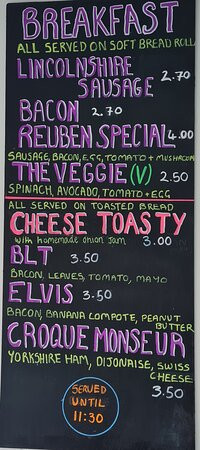 BREAKFAST
ALL SERVED ON SOFT BREAD ROLL
LINCOLNSHIRE
SAUSAGE 2.70
BACON 2.70
REUBEN SPECIAL 4.00
SAUSAGE, BACON, EGG, TOMATO + MUSHROOM
THE VEGGIE (V) 2.50
SPINACH, AVOCADO, TOMATO + EGG
ALL SERVED ON TOASTED BREAD
CHEESE TOASTY
with homemade onion jam 3.00
BLT 3.50
BACON, LEAVES, TOMATO, MAYO
ELVIS 3.50
BACON, BANANA COMPOTE, PEANUT
BUTTER
CROQUE MONSEUR
YORKSHIRE HAM, DIJONAISE, SWISS
CHEESE
3.50
SERVED
UNTIL
11:30